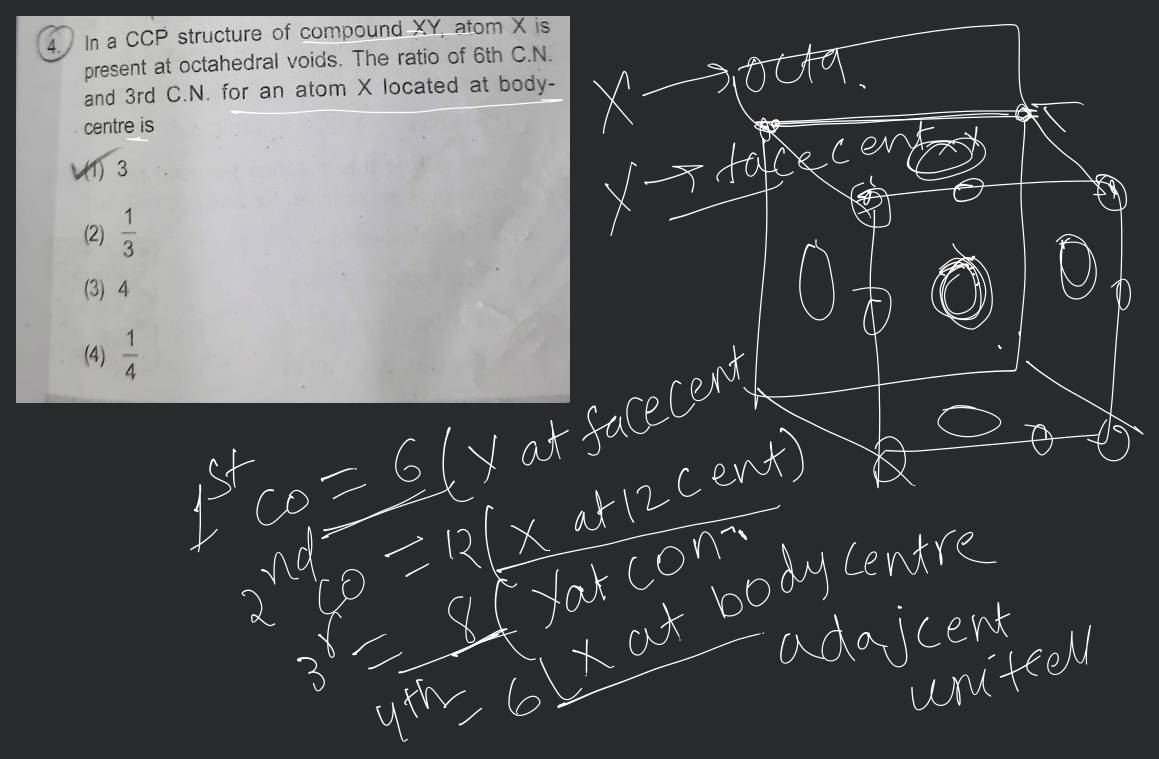 4. In a CCP structure of compound XY, atom X is
present at octahedral voids. The ratio of 6th C.N.
and 3rd C.N. for an atom X located at body-
centre is
(1) 3
(2) 1/3
(3) 4
(4) 1/4
X → octa.
Y → facecent
1st CO = 6 (Y at facecent
2nd CO = 12 (X at 12 cent)
3r = 8 (Y at corn
4th = 6 (X at body centre
adajcent
unitcell